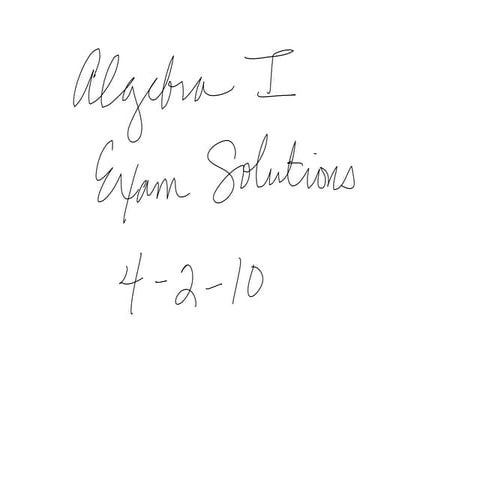 Algebra I
Exam Solutions
4-2-10